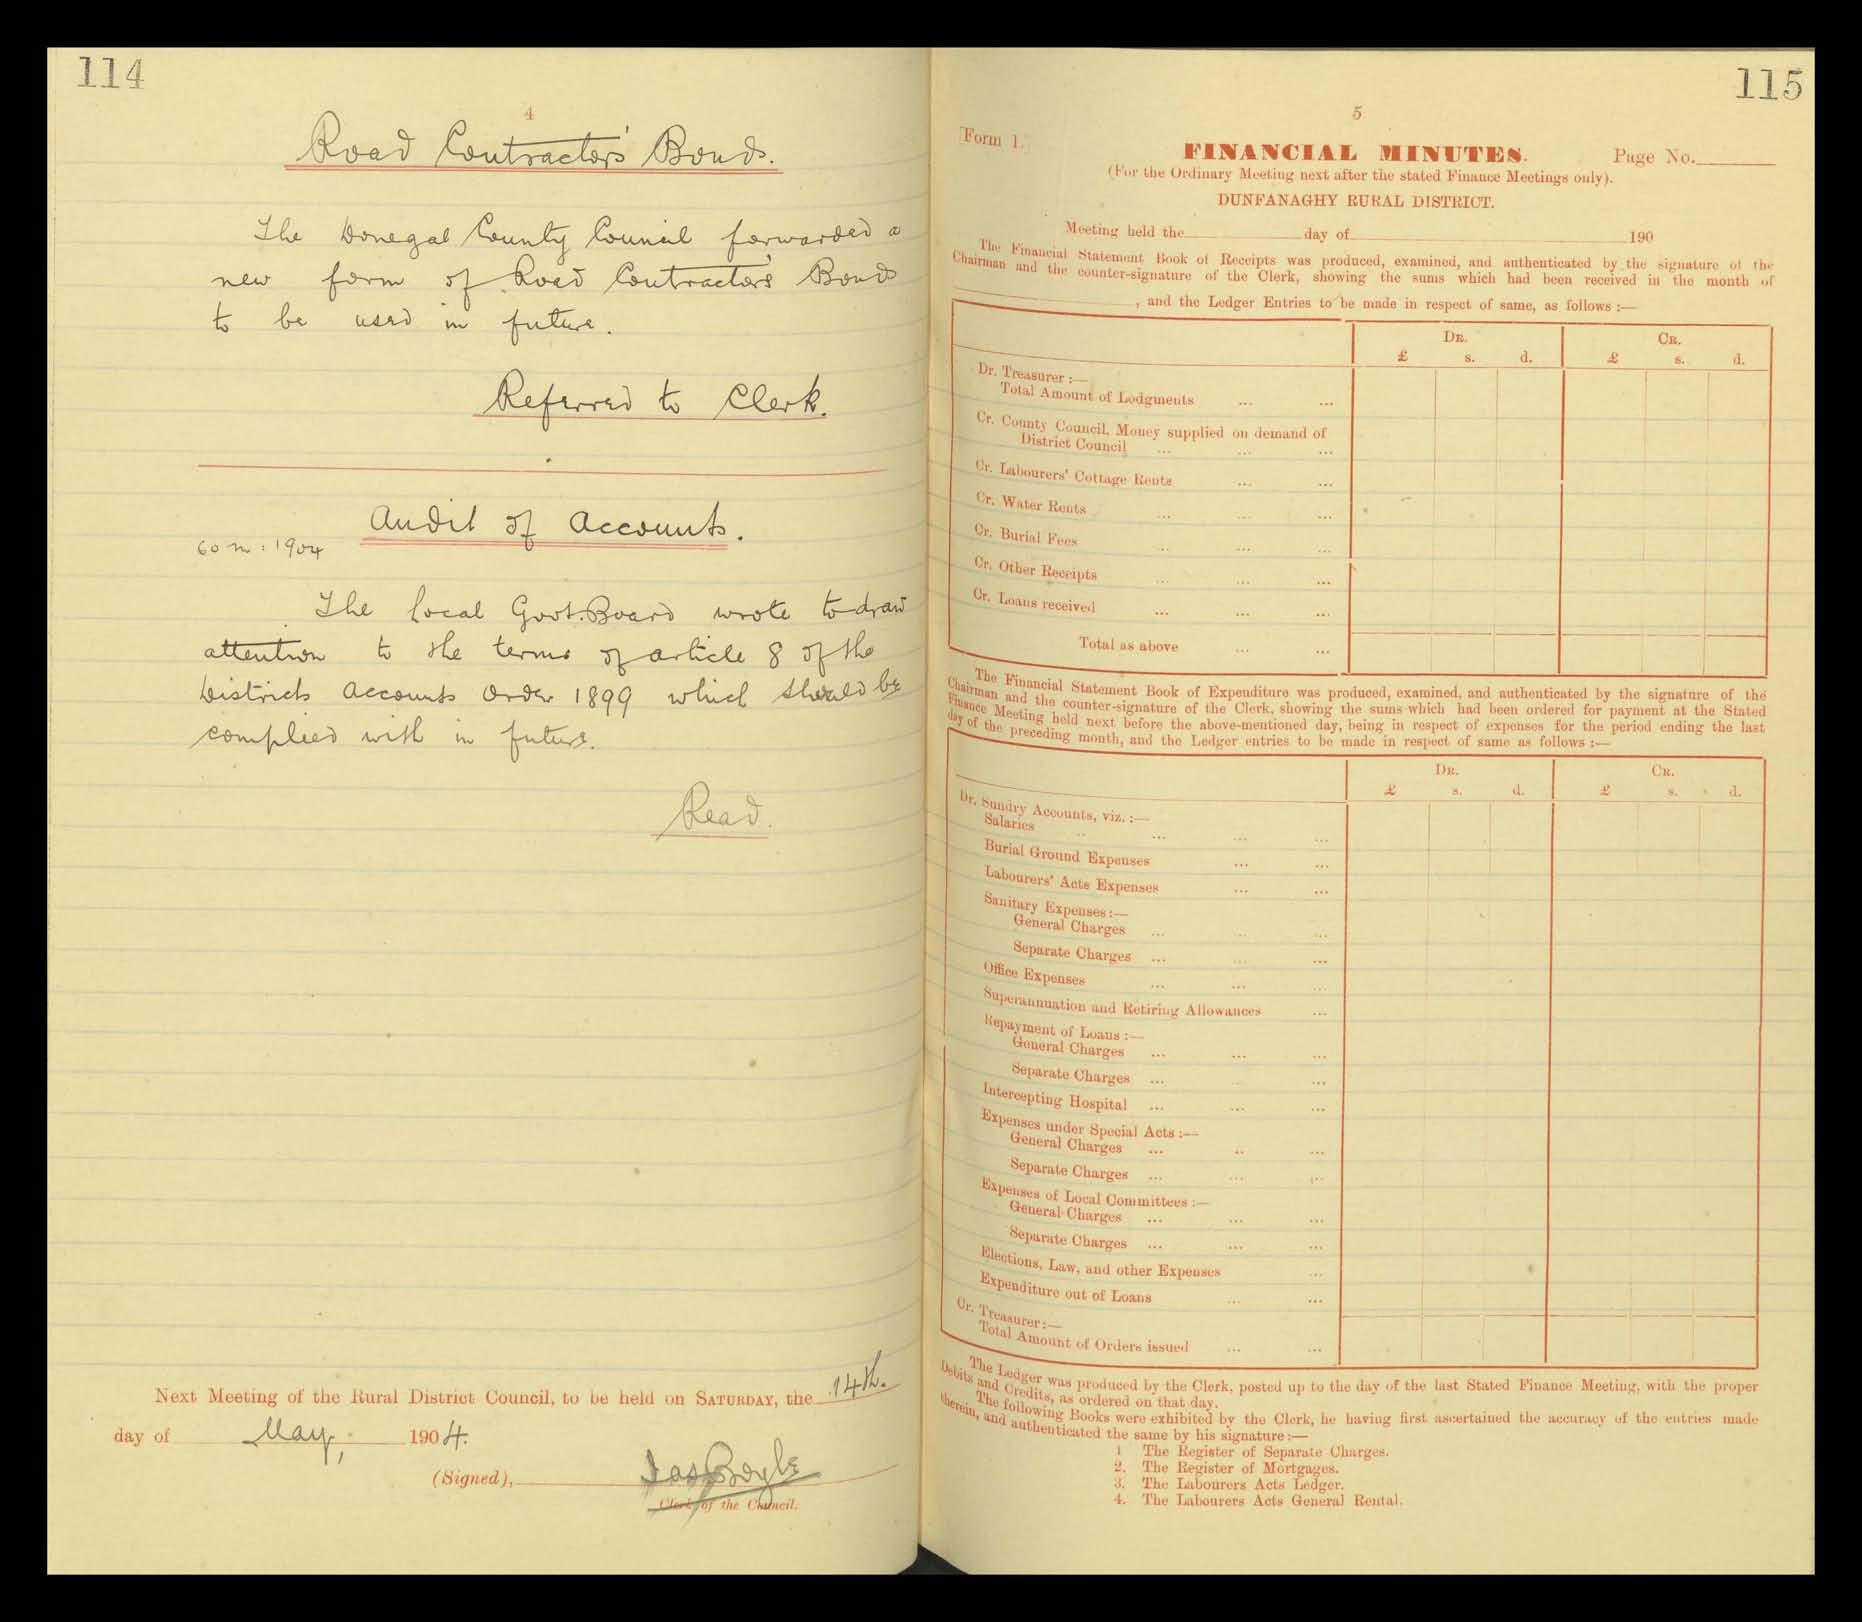 114
4
Road Contractors' Bonds.
The Donegal County Council forwarded a
new form of Road Contractor's Bond
to be used in future.
Referred to Clerk.
Audit of Accounts.
1904
The Local Govt. Board wrote to draw
attention to the terms of article 8 of the
Districts Accounts Order 1899 which should be
complied with in future.
Read.
Next Meeting of the Rural District Council, to be held on SATURDAY, the 14th.
day of May, 1904.
(Signed), Jas Boyle
Clerk of the Council.
115
5
[Form 1.]
FINANCIAL MINUTES. Page No.
(For the Ordinary Meeting next after the stated Finance Meetings only).
DUNFANAGHY RURAL DISTRICT.
Meeting held the day of 190
The Financial Statement Book of Receipts was produced, examined, and authenticated by the signature of the
Chairman and the counter-signature of the Clerk, showing the sums which had been received in the month of
, and the Ledger Entries to be made in respect of same, as follows :—
DR. CR.
£ s. d. £ s. d.
Dr. Treasurer :—
Total Amount of Lodgments ... ...
Cr. County Council, Money supplied on demand of
District Council ... ... ...
Cr. Labourers' Cottage Rents ... ...
Cr. Water Rents ... ... ...
Cr. Burial Fees ... ... ...
Cr. Other Receipts ... ... ...
Cr. Loans received ... ... ...
Total as above ... ...
The Financial Statement Book of Expenditure was produced, examined, and authenticated by the signature of the
Chairman and the counter-signature of the Clerk, showing the sums which had been ordered for payment at the Stated
Finance Meeting held next before the above-mentioned day, being in respect of expenses for the period ending the last
day of the preceding month, and the Ledger entries to be made in respect of same as follows :—
DR. CR.
£ s. d. £ s. d.
Dr. Sundry Accounts, viz. :—
Salaries ... ... ... ...
Burial Ground Expenses ... ...
Labourers' Acts Expenses ... ...
Sanitary Expenses :—
General Charges ... ... ...
Separate Charges ... ... ...
Office Expenses ... ... ...
Superannuation and Retiring Allowances ...
Repayment of Loans :—
General Charges ... ... ...
Separate Charges ... ... ...
Intercepting Hospital ... ... ...
Expenses under Special Acts :—
General Charges ... ... ...
Separate Charges ... ... ...
Expenses of Local Committees :—
General Charges ... ... ...
Separate Charges ... ... ...
Elections, Law, and other Expenses ...
Expenditure out of Loans ... ...
Cr. Treasurer :—
Total Amount of Orders issued ... ...
The Ledger was produced by the Clerk, posted up to the day of the last Stated Finance Meeting, with the proper
Debits and Credits, as ordered on that day.
The following Books were exhibited by the Clerk, he having first ascertained the accuracy of the entries made
therein, and authenticated the same by his signature :—
1 The Register of Separate Charges.
2. The Register of Mortgages.
3. The Labourers Acts Ledger.
4. The Labourers Acts General Rental.